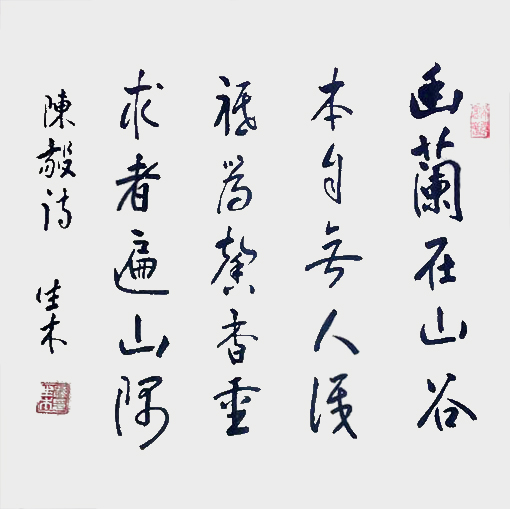 幽蘭在山谷
本自無人識
祗為馨香重
求者遍山隅
陳毅詩 佳木